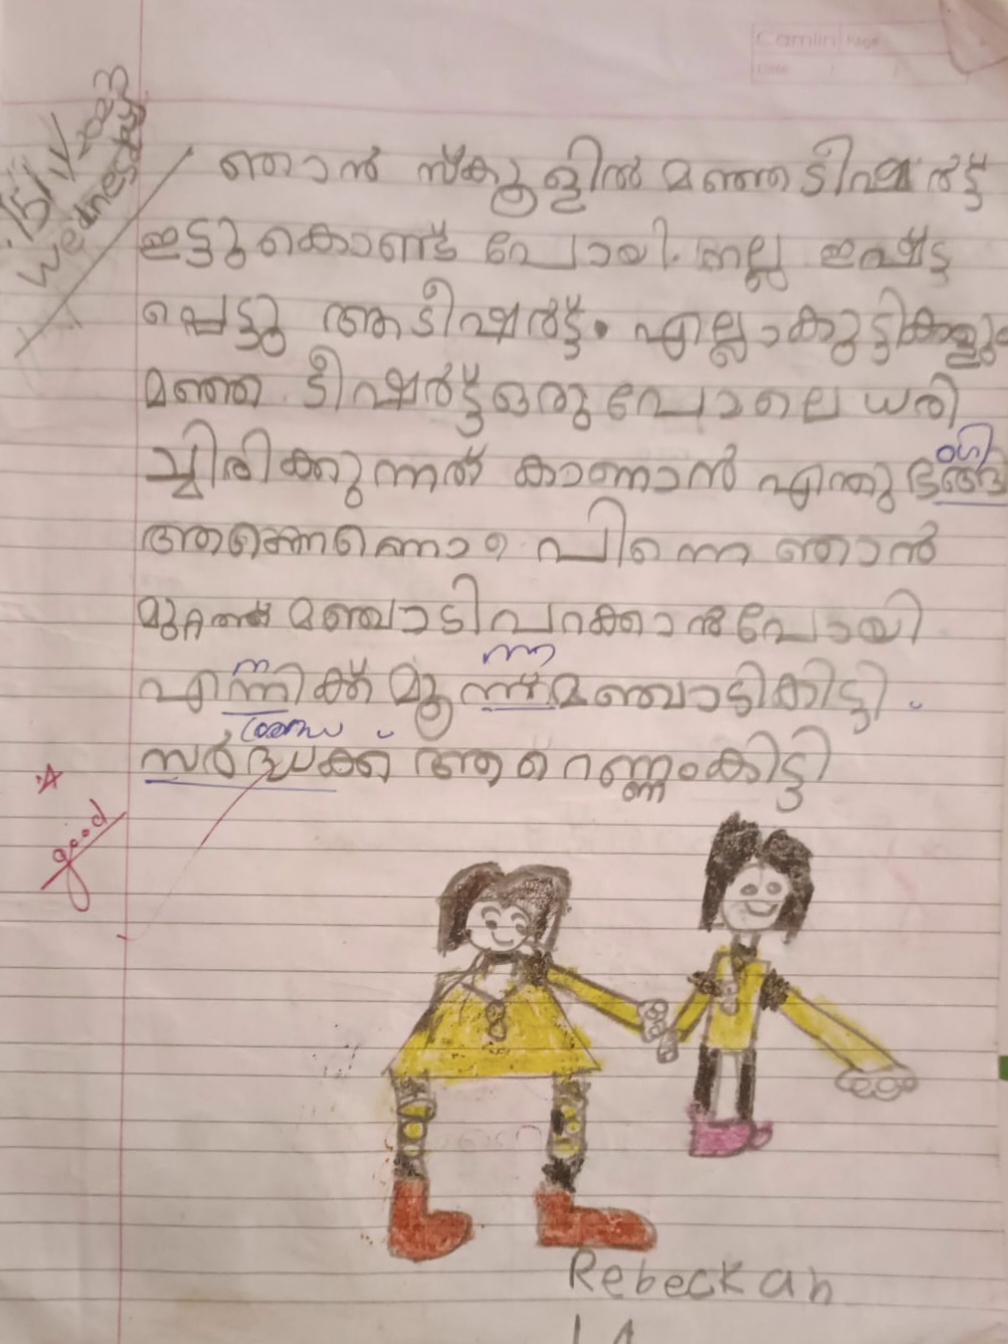 Camlin Page
Date
15/11/2023
Wednesday
ഞാൻ സ്കൂളിൽ മഞ്ഞ ടീഷർട്ട്
ഇട്ടുകൊണ്ട് പോയി. നല്ല ഇഷ്ട
പ്പെട്ടു ആ ടീഷർട്ട്. എല്ലാ കുട്ടികളും
മഞ്ഞ ടീഷർട്ട് ഒരു പോലെ ധരി
ച്ചിരിക്കുന്നത് കാണാൻ എന്തു
ംഗി
പിന്നെ ഞാൻ
മഞ്ചാടി പറക്കാൻ പോയി
ന
ന്ന
എന്നിക്ക് മൂന്ന് മഞ്ചാടി കിട്ടി.
ആറെണ്ണം കിട്ടി
good
Rebeckah